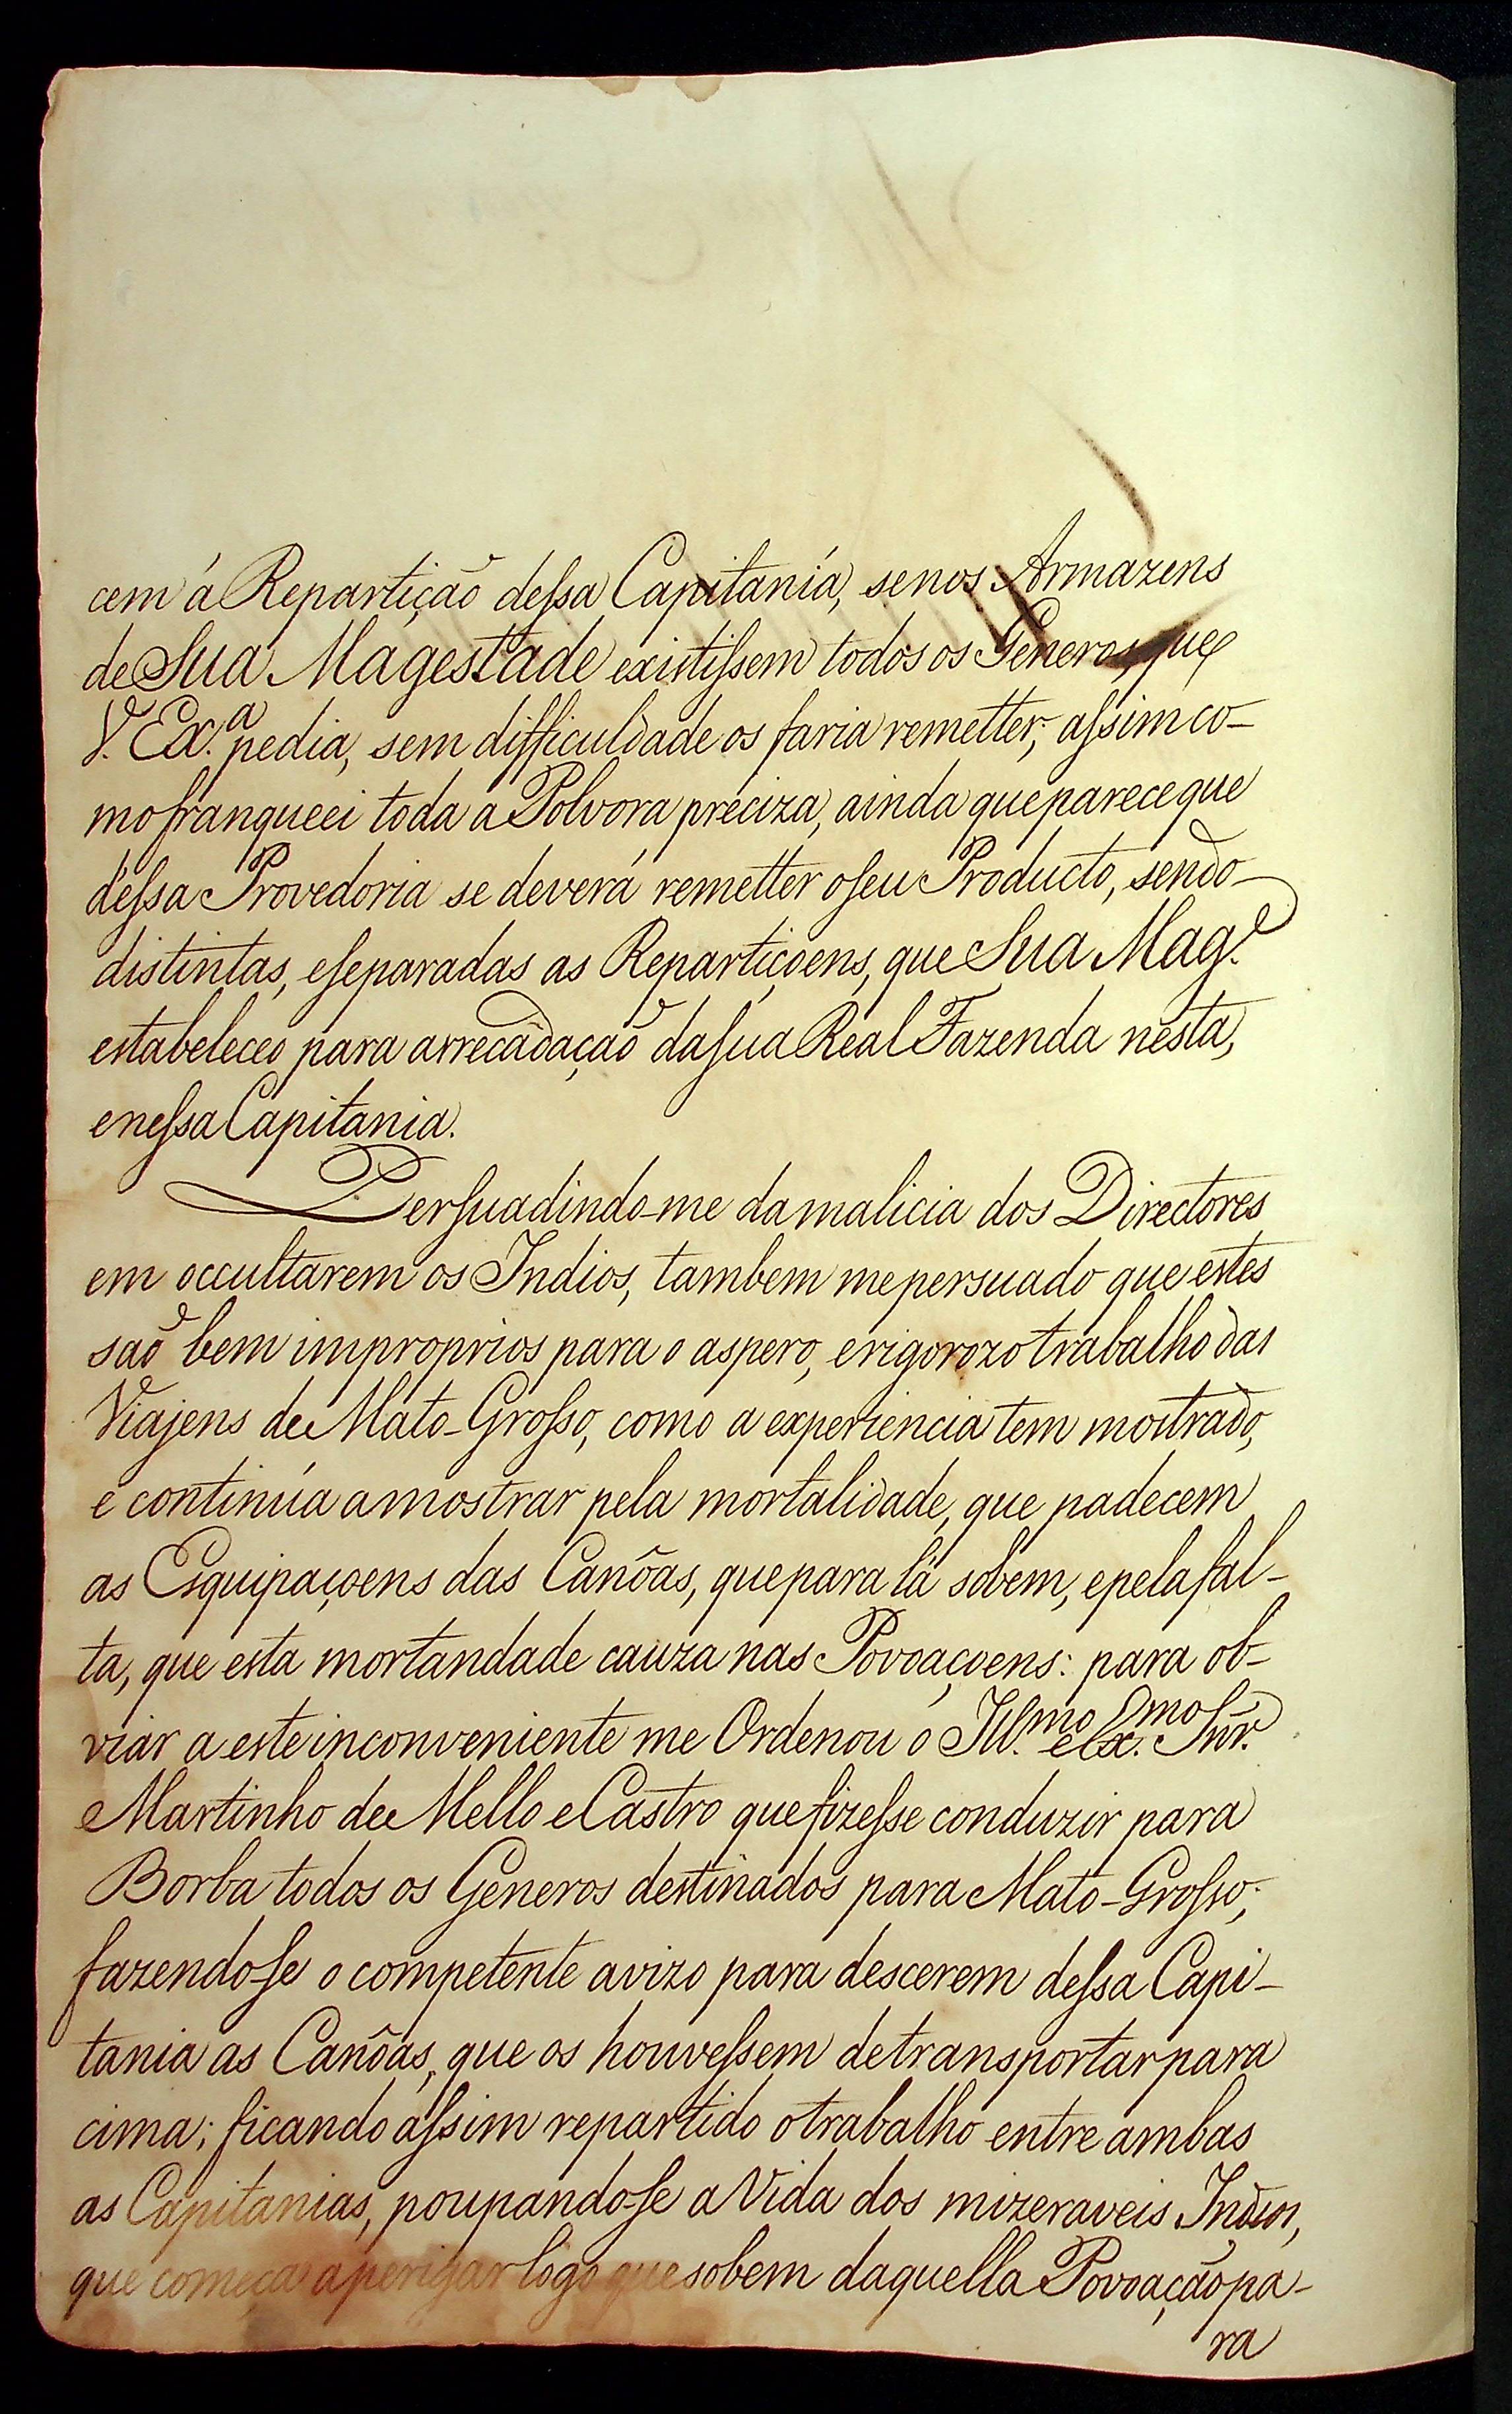 cem á Repartição dessa Capitanía, se nos Armazens
de Sua Magestade existissem todos os Generos, que
V. Ex.ª pedia, sem difficuldade os faria remetter; assim co-
mo franqueei toda a Polvora preciza, ainda que parece que
déssa Provedoria se deverá remetter o seu Producto, sendo
distintas, e separadas as Repartiçoens, que Sua Mag.e
estabeleceo para arrecadação da sua Real Fazenda nesta,
e nessa Capitania.
Persuadindo-me da malicia dos Directores
em occultarem os Indios, tambem me persuado que estes
saõ bem improprios para o aspero, e rigorozo trabalho das
Viajens de Mato-Grosso, como a experiencia tem mostrado,
e continúa a mostrar pela mortalidade, que padecem
as Esquipaçoens das Canôas, que para lá sobem, e pela fal-
ta, que esta mortandade cauza nas Povoaçoens: para ob-
viar a este inconveniente me Ordenou o Ill.mo e Ex.mo Snr.
Martinho de Mello e Castro que fizesse conduzir para
Borba todos os Generos destinados para Mato-Grosso;
fazendo-se o competente avizo para descerem dessa Capi-
tania as Canôas, que os houvessem de transportar para
cima; ficando assim repartido o trabalho entre ambas
as Capitanias, poupando-se a Vida dos mizeraveis Indios,
que começa a perigar logo que sobem daquella Povoação pa-
ra